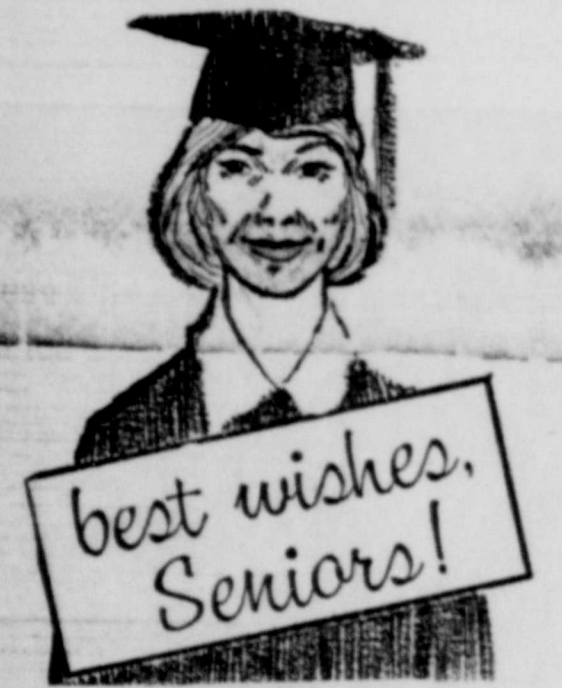 best wishes,
Seniors!